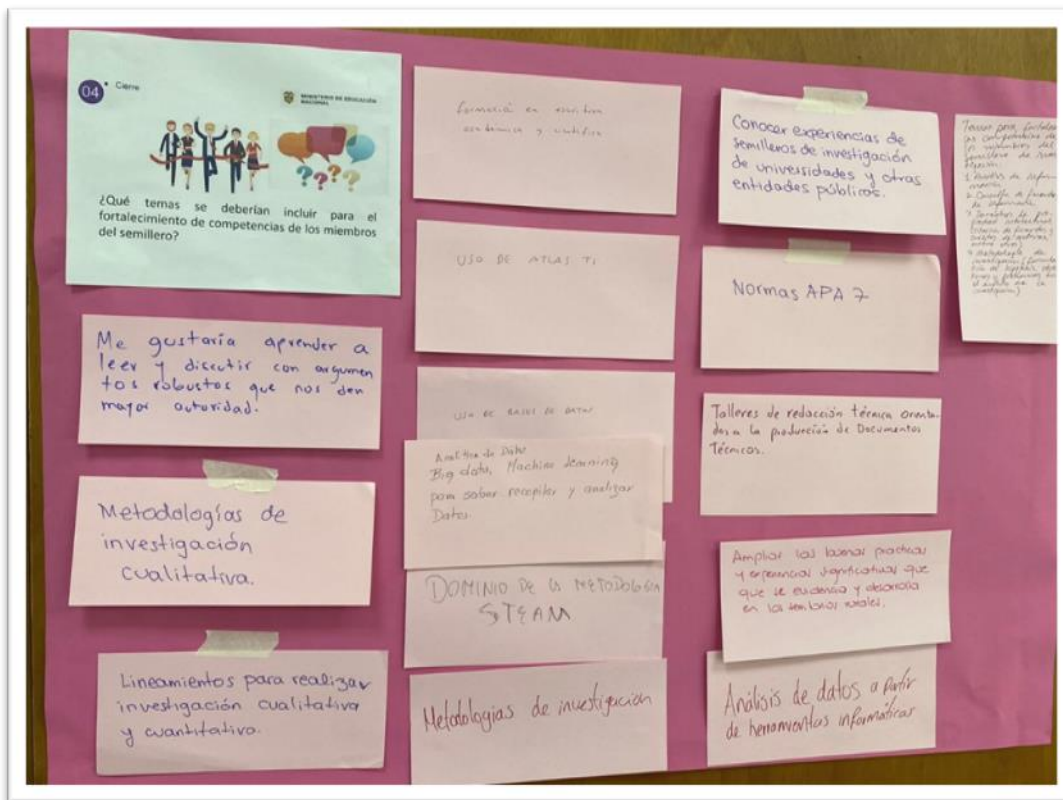 04 • Cierre
MINISTERIO DE EDUCACIÓN
NACIONAL
????
¿Qué temas se deberían incluir para el
fortalecimiento de competencias de los miembros
del semillero?
Me gustaría aprender a
leer y discutir con argumen
tos robustos que nos den
mayor autoridad.
Metodologías de
investigación
cualitativa.
Lineamientos para realizar
investigación cualitativa
y cuantitativa.
en escritura
académica y científica
USO DE ATLAS TI
USO DE BASES DE DATOS
Analítica de Datos
Big data, Machine Learning
para saber recopilar y analizar
Datos.
DOMINIO DE LA METODOLOGIA
STEAM
Metodologias de investigación
Conocer experiencias de
semilleros de investigación
de universidades y otras
entidades públicas.
Normas APA 7
Talleres de redacción técnica orienta-
dos a la producción de Documentos
Técnicos.
Ampliar las buenas practicas
y experiencias significativas que
que se evidencia y desarrolla
en los territorios rurales.
Análisis de datos a partir
de herramientas informáticas
Temas para fortalecer
las competencias de